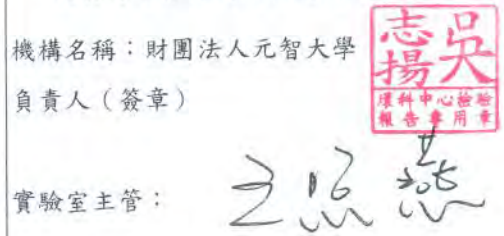 機構名稱：財團法人元智大學
負責人（簽章）
吳志揚
環科中心檢驗
報告專用章
實驗室主管：王照燕